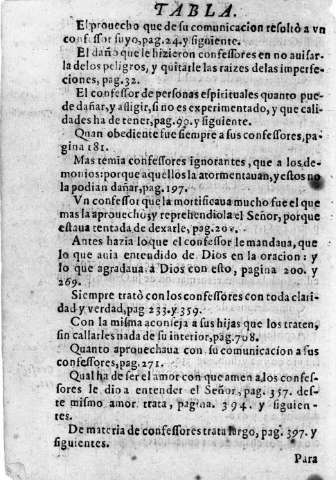 TABLA.
El prouecho que de su comunicacion resultò a vn
confessor suyo, pag. 24. y siguiente.
El daño que le hizieron confessores en no auisar-
la de los peligros, y quitarle las raizes de las imperfe-
ciones, pag. 32.
El confessor de personas espirituales quanto pue-
de dañar, y afligir, si no es experimentado, y que cali-
dades ha de tener, pag. 99. y siguiente.
Quan obediente fue siempre a sus confessores, pa-
gina 181.
Mas temia confessores ignorantes, que a los de-
monios: porque aquellos la atormentauan, y estos no
la podian dañar, pag. 197.
Vn confessor que la mortificaua mucho fue el que
mas la aprouechò; y reprehendiola el Señor, porque
estaua tentada de dexarle, pag.
Antes hazia lo que el confessor le mandaua, que
lo que auia entendido de Dios en la oracion: y
lo que agradaua a Dios con esto, pagina 200. y
269.
Siempre tratò con los confessores con toda clari-
dad y verdad, pag 233. y 359.
Con la misma aconseja a sus hijas que los traten,
sin callarles nada de su interior, pag. 708.
Quanto aprouechaua con su comunicacion a sus
confessores, pag. 271.
Qual ha de ser el amor con que amen a los confes-
sores le dio a entender el Señor, pag. 357. des-
te mismo amor trata, pagina. 394. y siguien-
tes.
De materia de confessores trata largo, pag. 397. y
siguientes.
Para